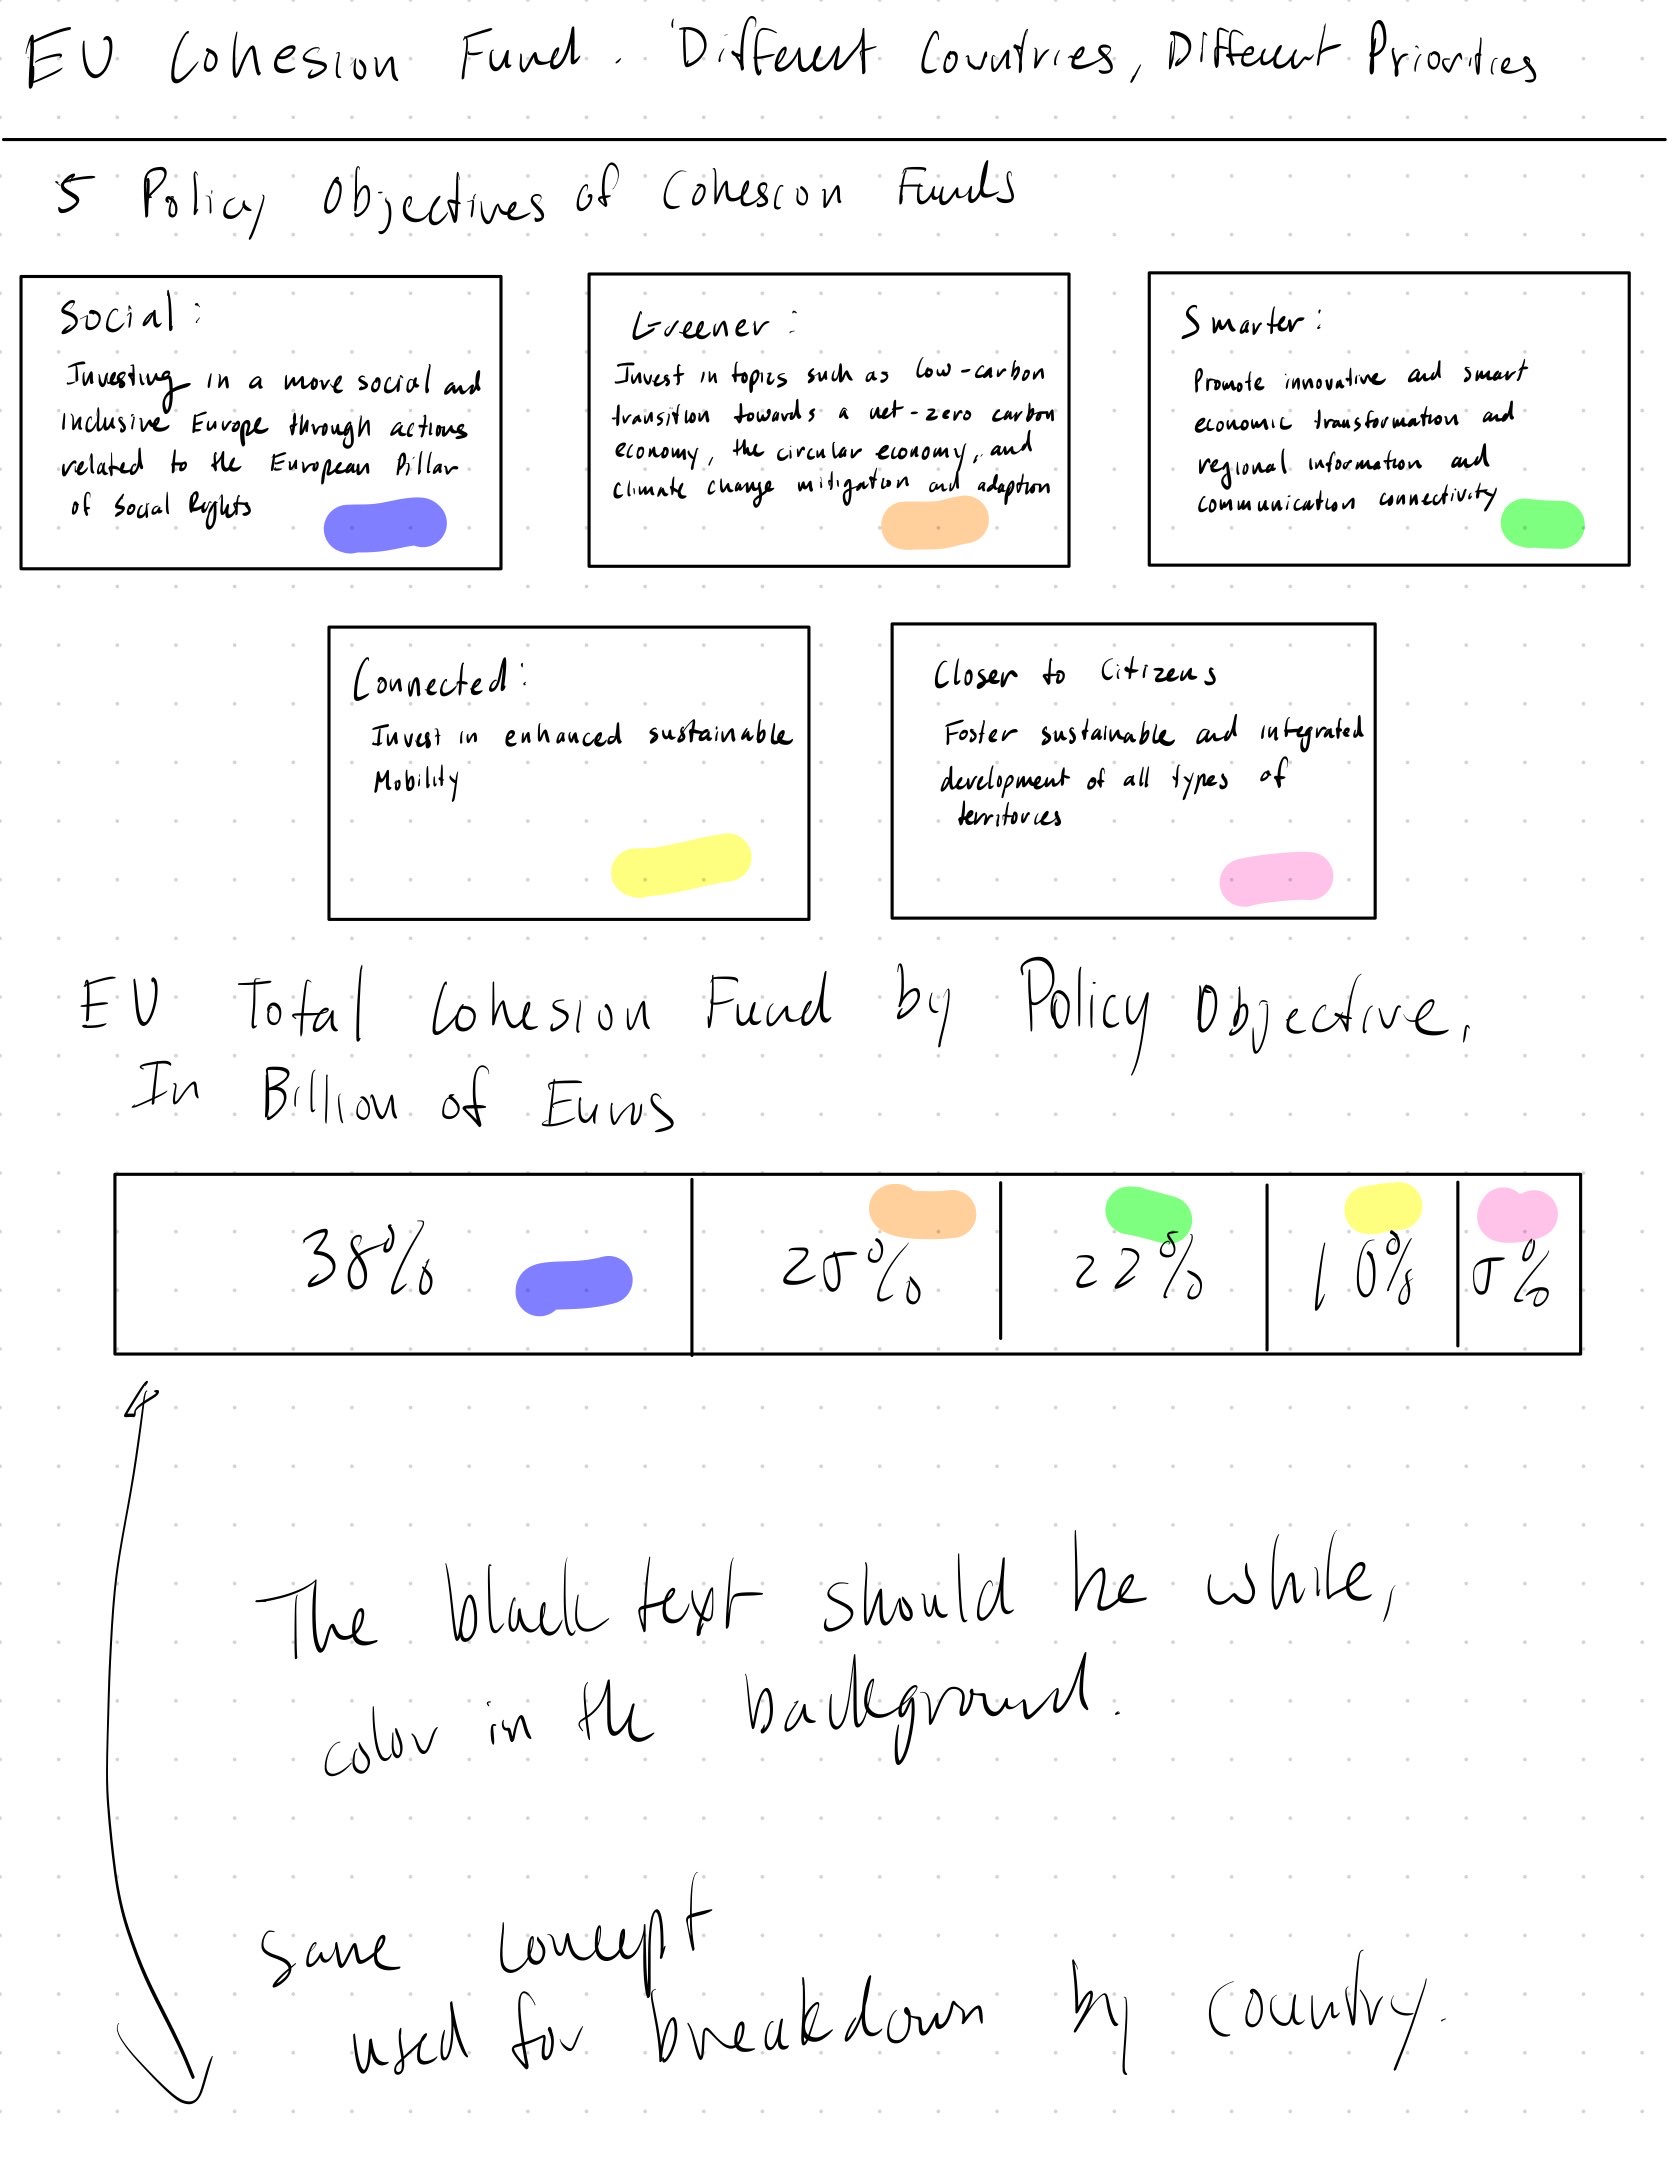 EU Cohesion Fund. Different Countries, Different Priorities
5 Policy Objectives of Cohesion Funds
Social:
Investing in a more social and
inclusive Europe through actions
related to the European Pillar
of Social Rights
Greener:
Invest in topics such as low-carbon
transition towards a net-zero carbon
economy, the circular economy, and
climate change mitigation and adaption
Smarter:
Promote innovative and smart
economic transformation and
regional information and
communication connectivity
Connected:
Invest in enhanced sustainable
Mobility
Closer to Citizens
Foster sustainable and integrated
development of all types of
territories
EU Total Cohesion Fund by Policy Objective,
In Billion of Euros
38% 25% 22% 10% 5%
The black text should be white,
color in the background.
Same concept
used for breakdown by country.